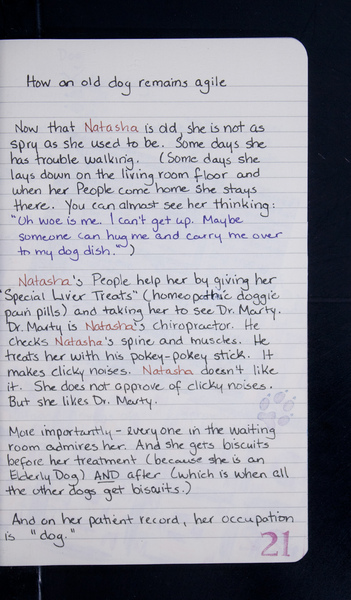 How an old dog remains agile
Now that Natasha is old, she is not as
spry as she used to be. Some days she
has trouble walking. (Some days she
lays down on the living room floor and
when her People come home she stays
there. You can almost see her thinking:
"Oh woe is me. I can't get up. Maybe
someone can hug me and carry me over
to my dog dish.")
Natasha's People help her by giving her
"Special Liver Treats" (homeopathic doggie
pain pills) and taking her to see Dr. Marty.
Dr. Marty is Natasha's chiropractor. He
checks Natasha's spine and muscles. He
treats her with his pokey-pokey stick. It
makes clicky noises. Natasha doesn't like
it. She does not approve of clicky noises.
But she likes Dr. Marty.
More importantly - everyone in the waiting
room admires her. And she gets biscuits
before her treatment (because she is an
Elderly Dog) AND after (which is when all
the other dogs get biscuits.)
And on her patient record, her occupation
is "dog."
21